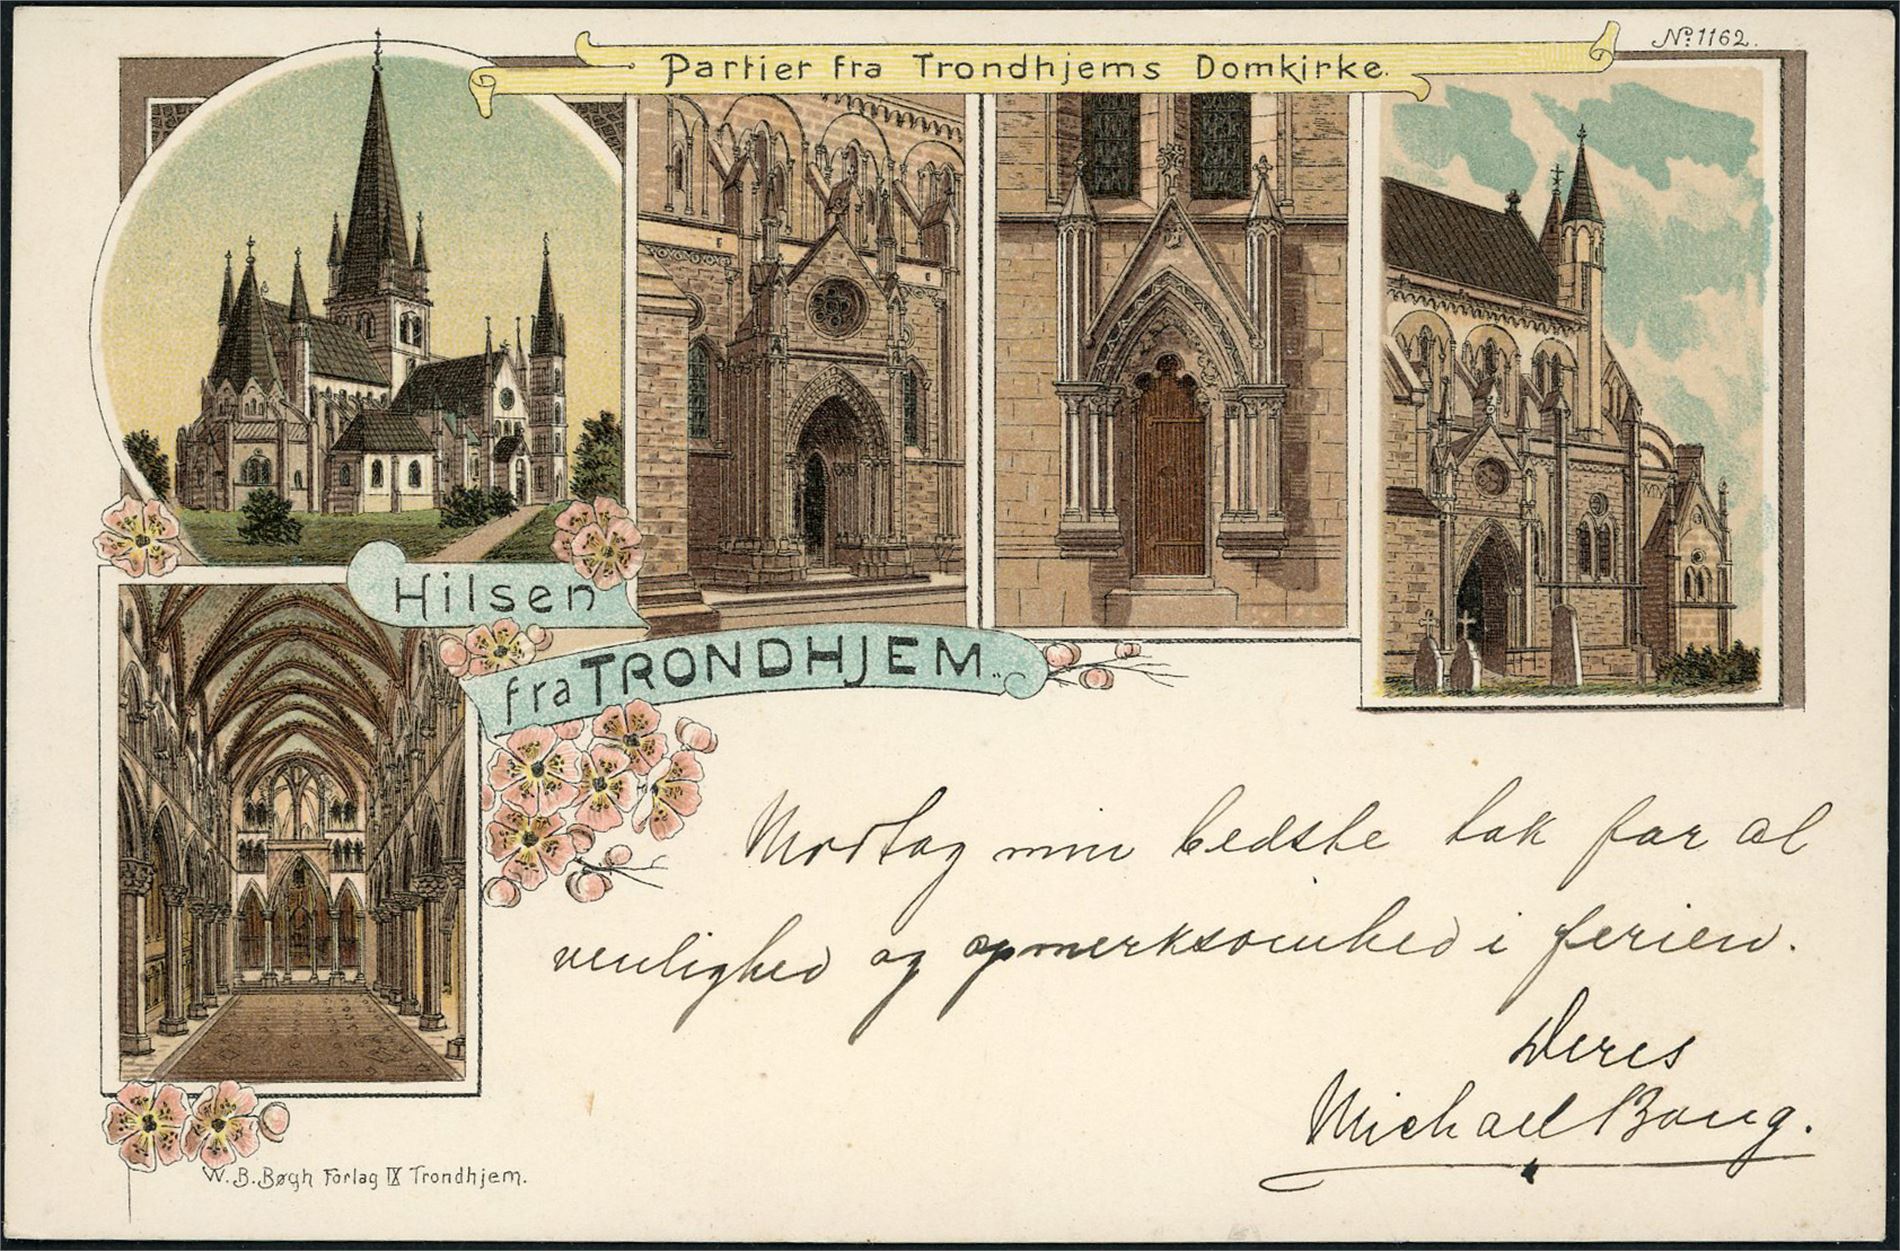 Nº 1162.
Partier fra Trondhjems Domkirke.
Hilsen
fra TRONDHJEM.
Modtag min bedste tak for al
venlighed og opmerksomhed i ferien.
Deres
Michael Baug.
W. B. Bøgh Forlag IX Trondhjem.